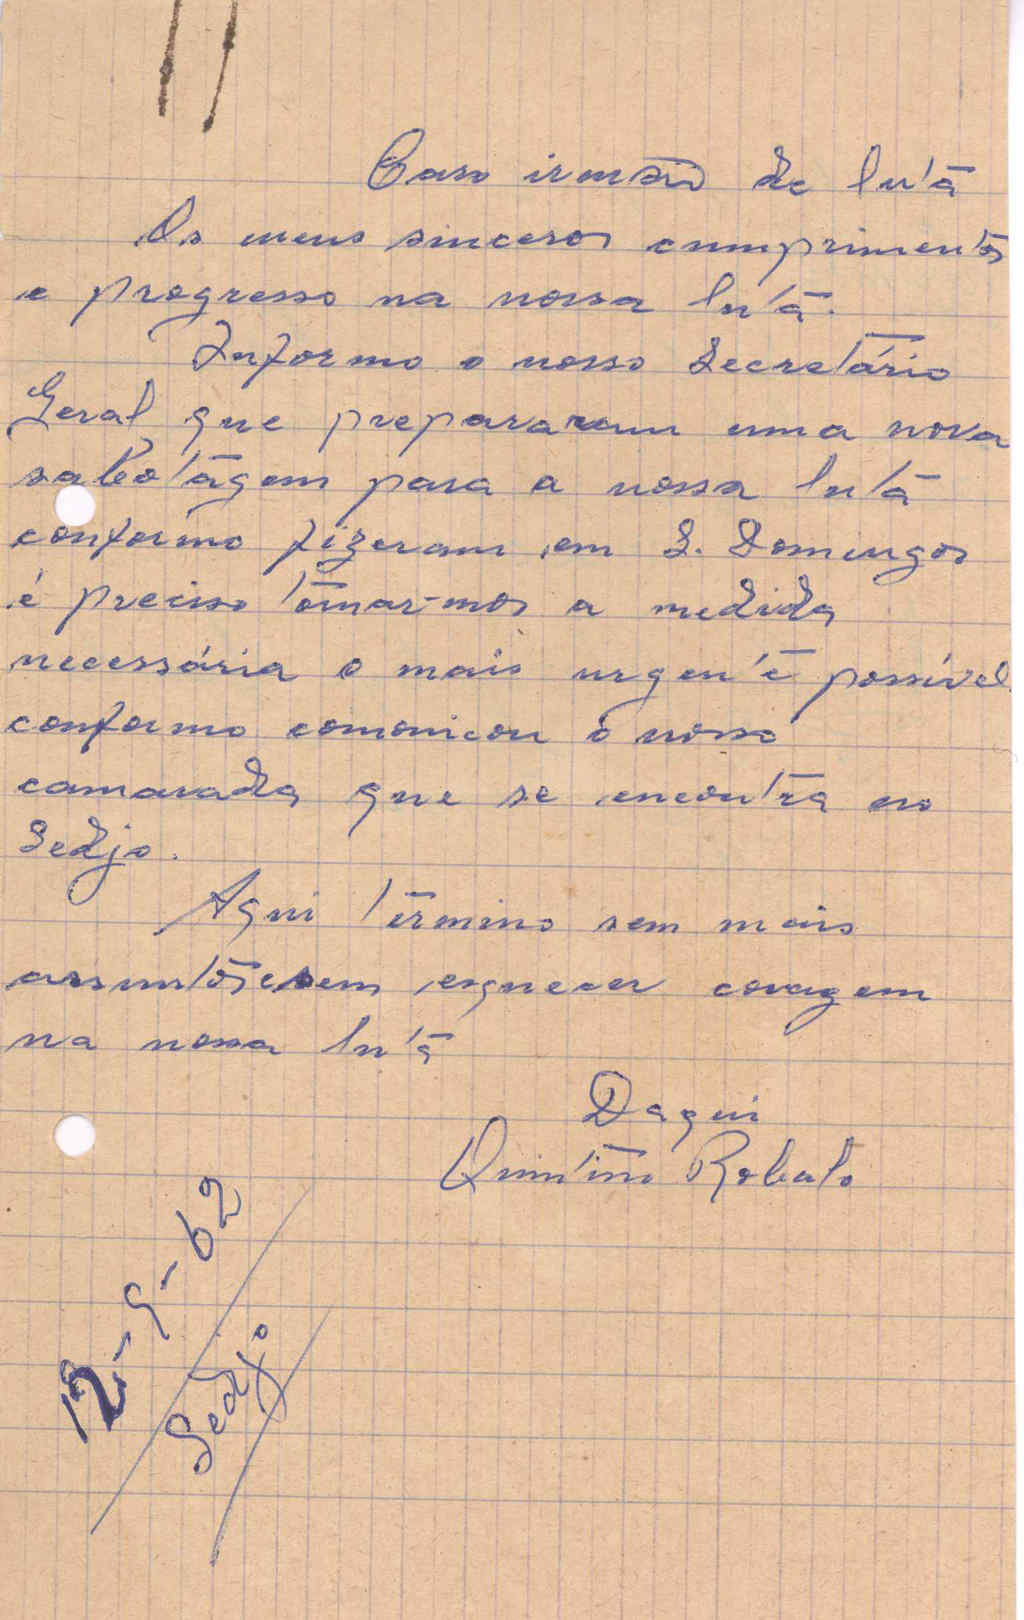 Caro irmão de luta
Os meus sinceros cumprimentos
e progresso na nossa luta.
Informo o nosso Secretário
Geral que prepararam uma nova
sabotagem para a nossa luta
conformo fizeram em S. Domingos
é preciso tomar-mos a medida
necessária o mais urgente possível
conformo comonicou o nosso
camarada que se encontra no
Sedjo.
Aqui termino sem mais
assuntos sem esquecer coragem
na nossa luta
Daqui
Quintino Robalo
12-9-62
Sedjo